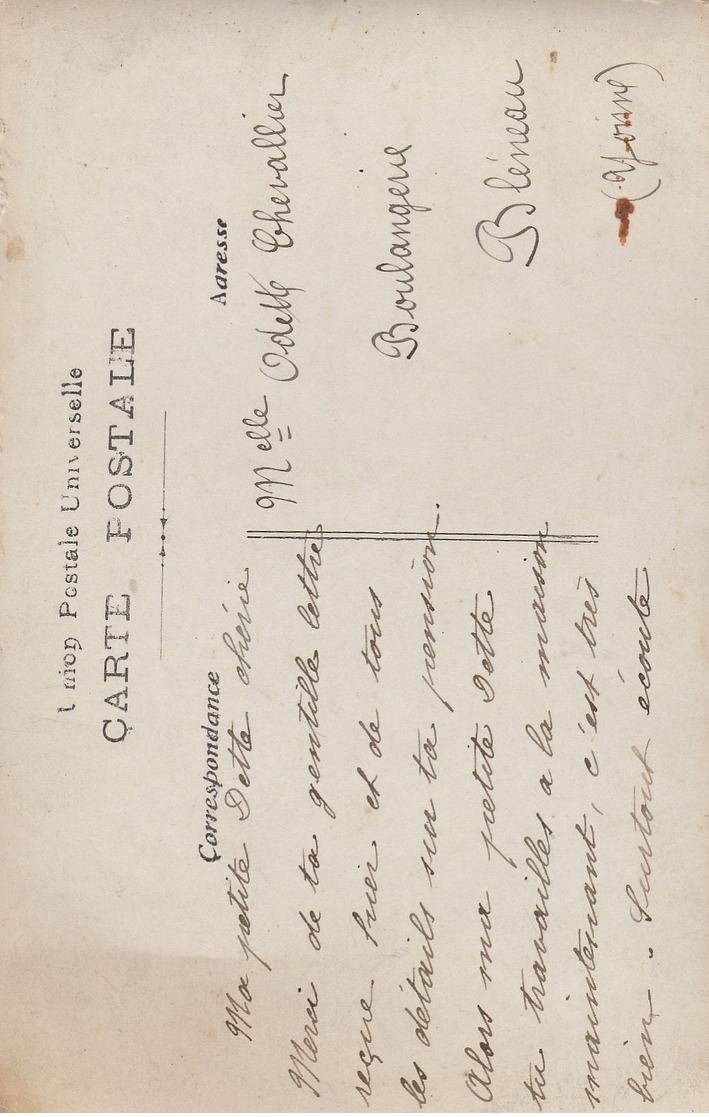 Union Postale Universelle
CARTE POSTALE
Correspondance
Adresse
Ma petite Dette chérie
Merci de ta gentille lettre
reçue hier et de tous
les détails sur ta pension.
Alors ma petite Dette
tu travailles a la maison
maintenant, c'est très
bien. Surtout écoute
Melle Odette Chevallier
Boulangerie
Bléneau
(Yonne)